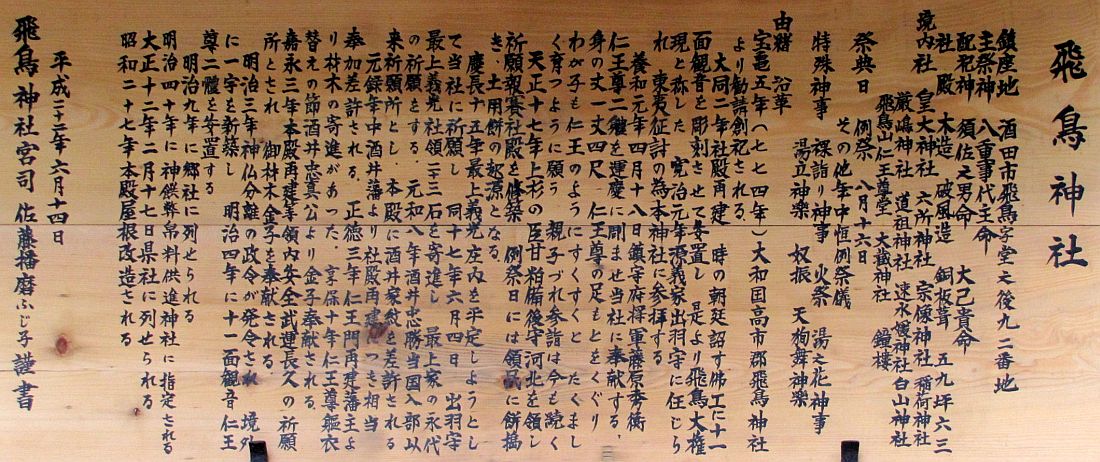 飛鳥神社
鎮座地　酒田市飛鳥字堂之後九二番地
主祭神　八重事代主命
配祀神　須佐之男命　大己貴命
社殿　木造　破風造　銅板葺　五九坪六三
境内社　皇大神社　六所神社　宗像神社　稲荷神社
厳嶋神社　道祖神社　速水媛神社　白山神社
飛鳥山仁王尊堂　大蔵神社　鐘楼
祭典日　例祭　八月十六日
その他年中恒例祭儀
特殊神事　裸詣り神事　火祭　湯之花神事
湯立神楽　奴振　天狗舞神楽
由緒　沿革
宝亀五年（七七四年）大和国高市郡飛鳥神社
より勧請創祀される。
大同二年社殿再建　時の朝廷詔す佛工に十一
面観音を彫刻させて安置し　是より飛鳥大権
現と称した　寛治元年源義家出羽守に任じら
れ　東夷征討の為本神社に参拝する
養和元年四月十八日鎮守府将軍藤原秀衡
仁王尊二躰を運慶に刻ませ当社に奉献する、
身の丈一丈四尺　仁王尊の足もとをくぐり
わが子も仁王のようにすくすくと　たくまし
く育つように願う　親子づれ参詣は今も続く
天正十七年上杉の臣甘粕備後守河北を領し
祈願報賽社殿を修築　例祭日には領民に餅搗
き、土用餅の起源となる
慶長十五年最上義光庄内を平定しようとし
て当社に祈願し　同十七年六月四日　出羽守
最上義光社領三十三石を寄進し　最上家の永代
の祈願をする、元和八年酒井忠勝当国入部以
来祈願所とし、本殿に酒井家紋を差許される
元録年中酒井藩より社殿再建につき相当
奉加差許される、正徳三年仁王門再建藩主よ
り材木の寄進があった、享保十年仁王尊躯衣
替えの節酒井忠真公より金子奉献される、
嘉永三年本殿再建等領内安全武運長久の祈願
所とされ　御材木金子を奉献される、
明治三年神仏分離の政令が発令され　境外
に一宇を新築し　明治四年に十一面観音仁王
尊二體を安置する
明治九年に郷社に列せられる
明治四十年に神饌幣帛料供進神社に指定される
大正十二年二月十七日県社に列せられる
昭和二十七年本殿屋根改造される
平成二十二年六月十四日
飛鳥神社宮司　佐藤播磨ふじ子謹書